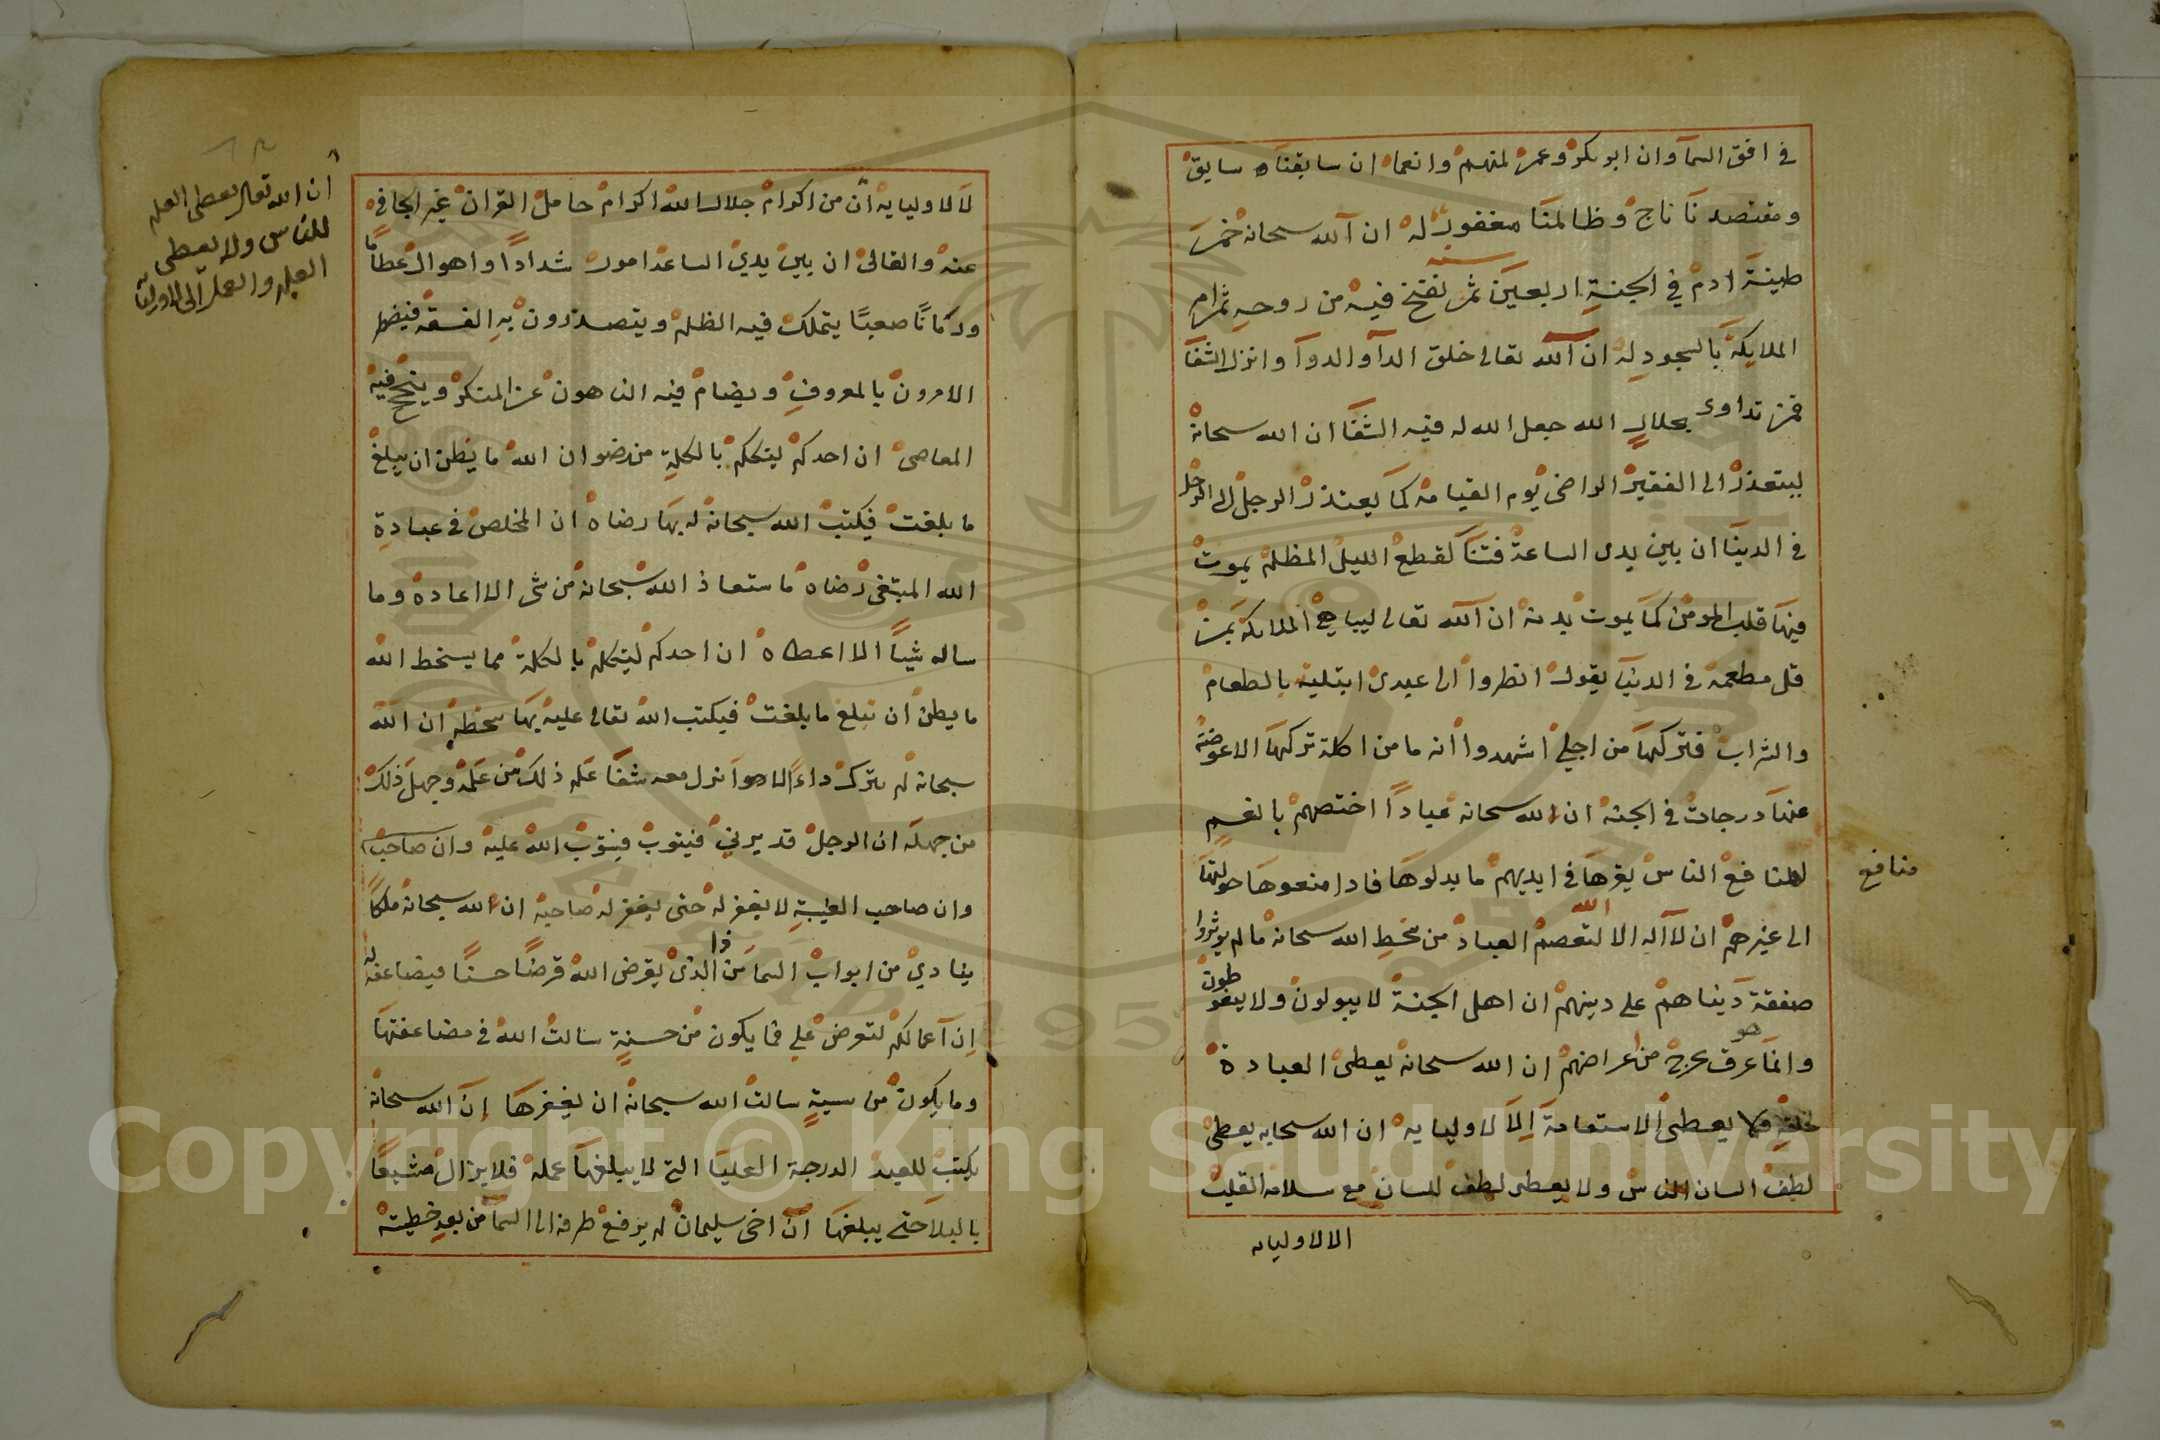 في افق السمآ وان ابو بكر وعمر لمنهم وانعما ان سابقنا سابق
ومقتصدنا ناج وظالمنا مغفور له ان آلله سبحانه خمر
طينة ادم في الجنة اربعين سنه ثم نفخ فيه من روحه ثم امر
الملايكة بالسجود له ان الله تعالى خلق الدآ والدوآ وانزل الشفآ
فمن تداوى بحلال الله جعل الله له فيه الشفآ ان الله سبحانه
ليتعذر الى الفقير الراضى يوم القيامه كما يعتذر الرجل الى الرجل
في الدينا ان بين يدى الساعة فتنا كقطع الليل المظلم يموت
فيها قلب المومن كما يموت بدنه ان آلله تعالى ليباهي الملايكة بمن
قل مطعمه في الدنيا يقول انظروا الى عبدى ابتليته بالطعام
والشراب فتركها من اجلي اشهدوا انه ما من اكلة تركها الا عوضته
عنها درجات في الجنه ان الله سبحانه عبادا اختصهم بالنعم
لمنافع الناس يقرها في ايديهم ما بدلوها فاذا منعوها حولها
منافع
الى غيرهم ان لا اله الا الله لتعصم العباد من سخط الله سبحانه ما لم يوثروا
صفقة دنياهم على دينهم ان اهل الجنة لا يبولون ولا يتغوطون
وانما هو عرق يخرج من اعراضهم ان الله سبحانه يعطى العبادة
خلقه فلا يعطى الاستقامة الا لاوليايه ان الله سبحانه يعطى
لطف السان الناس ولا يعطى لطف لسان مع سلامه القلب
الا لاوليايه
لا لاوليايه ان من اكرام جلال الله اكرام حامل القران غير الجافى
عنه والغالى ان بين يدي الساعة امور شدادا واهوال عظاما
وزمانا صعبا يتملك فيه الظلمه ويتصدرون به الفسقه فيضطر
الامرون بالمعروف ويضام فيه الناهون عن المنكر وينجح فيه
المعاصى ان احدكم ليتكلم بالكلمة من رضوان الله ما يظن ان يبلغ
ما بلغت فيكتب الله سبحانه له بها رضاه ان المخلص في عبادة
الله المبتغى رضاه ما ستعاذ الله سبحانه من شى الا اعاذه وما
ساله شيا الا اعطاه ان احدكم ليتكلم بالكلمة مما يسخط الله
ما يظن ان تبلغ ما بلغت فيكتب الله تعالى عليه بها سخطه ان الله
سبحانه لم يترك داء الا وانزل معه شفآ علم ذلك من علمه وجهل ذلك
من جهله ان الرجل قد يزني فيتوب فيتوب الله عليه وان صاحب
وان صاحب الغيبة لا يغفر له حتى يغفر له صاحبه ان الله سبحانه ملكا
ينادي من ابواب السما من ذا الذى يقرض الله قرضا حسنا فيضاعفه له
ان آعمالكم لتعرض علي فما يكون من حسنة سالت الله في مضاعفتها
وما يكون من سية سالت الله سبحانه ان يغفرها ان الله سبحانه
يكتب للعبد الدرجة العليا التي لا يبلغها عمله فلا يزال متبعا
بالبلا حتى يبلغها ان اخى سليمان لم يرفع طرفه الى السما من بعد خطيته
ان الله تعالى يعطى العلم
للناس ولا يعطى
العلم والعمل الى الاوليآ
Copyright © King Saud University
1957